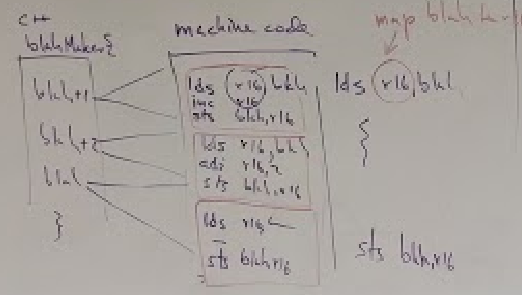 C++
blahMaker{
blah+1
blah+2
blah
}
machine code
lds r16, blah
inc r16
sts blah, r16
lds r16, blah
adi r16, 2
sts blah, r16
lds r16,
sts blah, r16
map blah
lds r16, blah
sts blah, r16